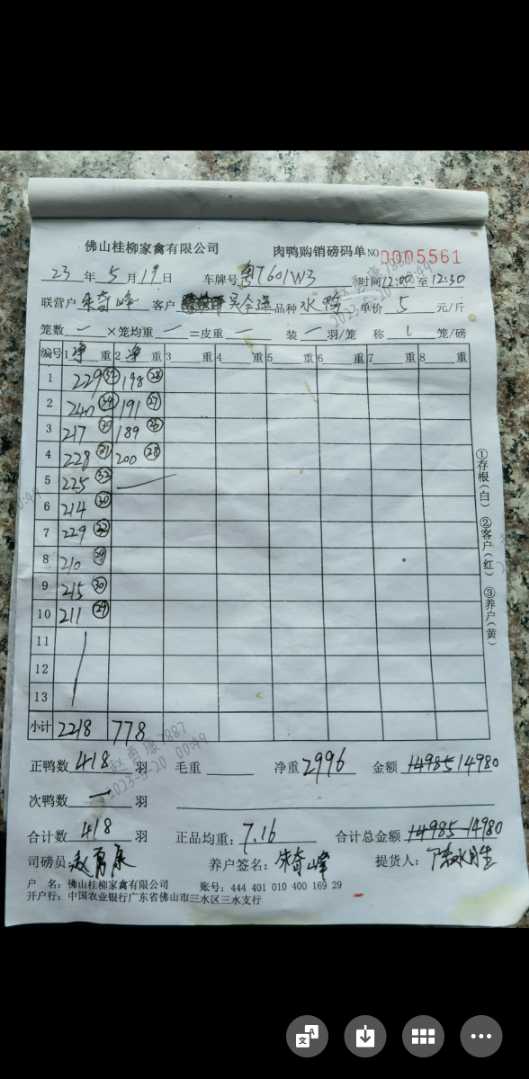 佛山桂柳家禽有限公司 肉鸭购销磅码单 NO 0005561
23年5月19日 车牌号 粤T601W3 时间12:00至12:30
联营户 朱奇峰 客户 品种 水鸭 单价 5 元/斤
笼数 一 ×笼均重 一 =皮重 一 装 一 羽/笼 称 1 笼/磅
编号 1 净 重 2 净 重 3 重 4 重 5 重 6 重 7 重 8 重
1 229 198 28
2 240 191 27
3 217 189
4 228 31 200 28
5 225 32
6 214 30
7 229
8 210 29
9 215 30
10 211 29
11
12
13
小计 2218 778
①存根(白) ②客户(红) ③养户(黄)
正鸭数 418 羽 毛重 净重 2996 金额 14985 14980
次鸭数 一 羽
合计数 418 羽 正品均重: 7.16 合计总金额 14985 14980
司磅员: 赵勇康 养户签名: 朱奇峰 提货人:
户 名: 佛山桂柳家禽有限公司 账号: 444 401 010 400 169 29
开户行: 中国农业银行广东省佛山市三水区三水支行